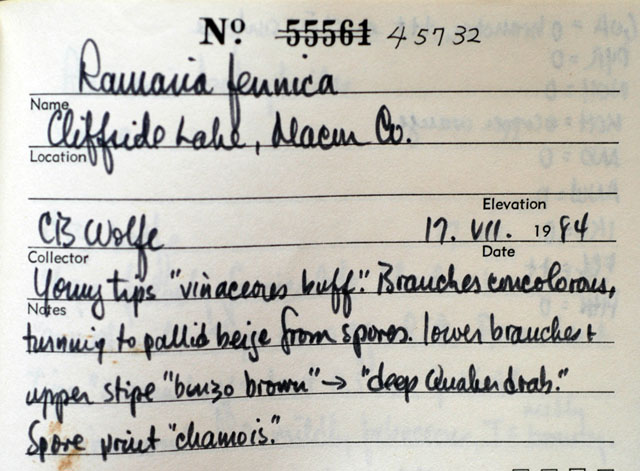 Nº 55561 45732
Ramaria fennica
Name
Cliffside Lake, Macon Co.
Location
Elevation
CB Wolfe 17. VII. 1984
Collector Date
Young tips "vinaceous buff". Branches concolorous,
Notes
turning to pallid beige from spores. lower branches +
upper stipe "benzo brown" → "deep Quaker drab."
Spore print "chamois."